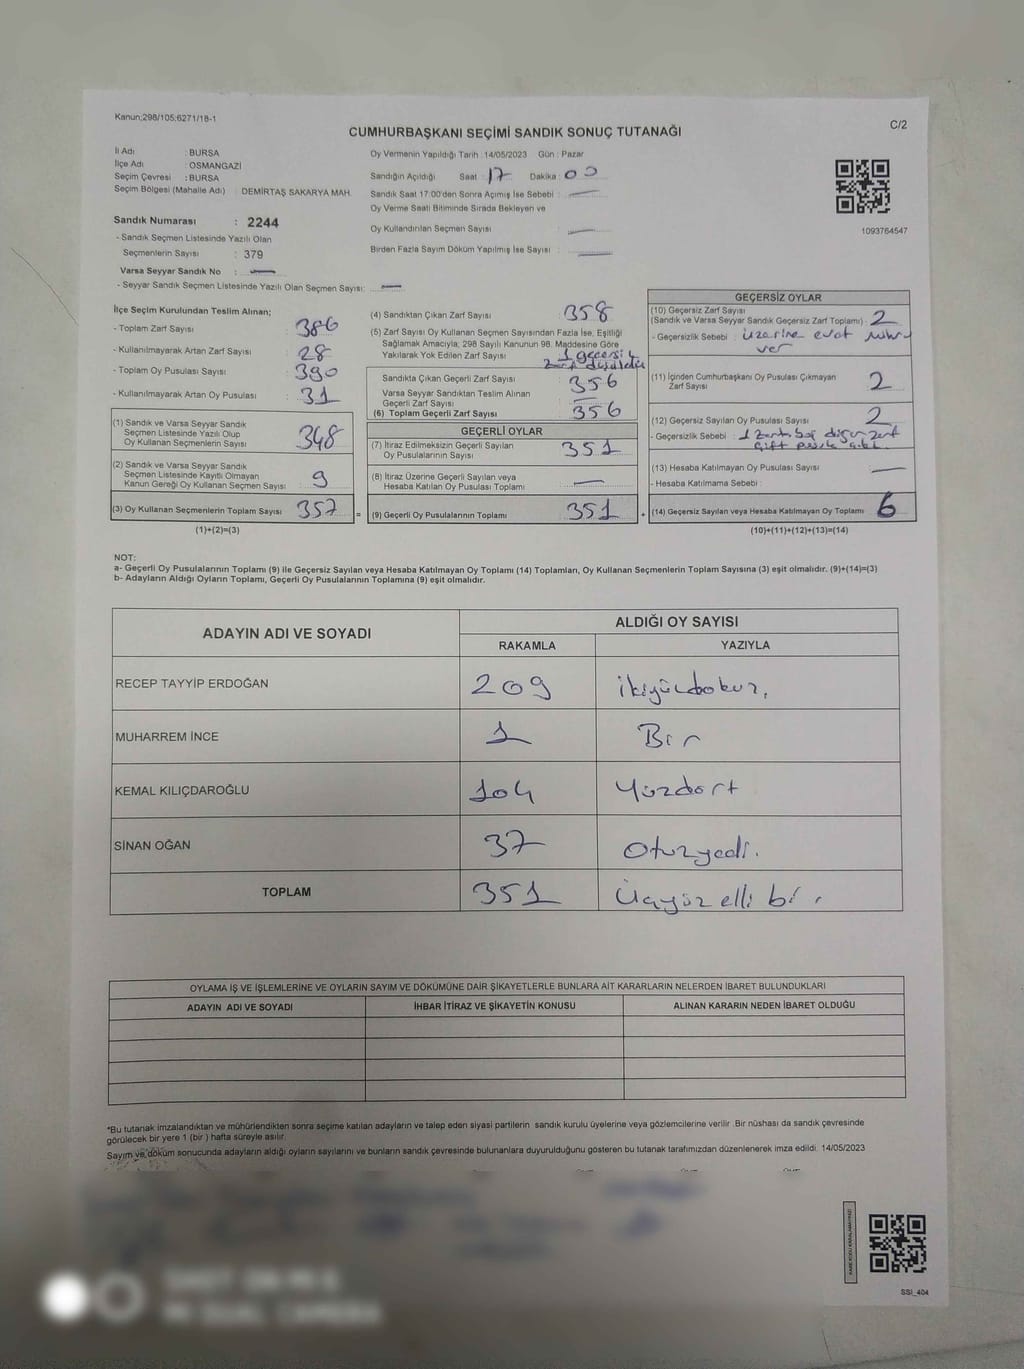 Kanun;298/105;6271/18-1
CUMHURBAŞKANI SEÇİMİ SANDIK SONUÇ TUTANAĞI
C/2
İl Adı : BURSA
İlçe Adı : OSMANGAZİ
Seçim Çevresi : BURSA
Seçim Bölgesi (Mahalle Adı) : DEMİRTAŞ SAKARYA MAH.
Sandık Numarası : 2244
- Sandık Seçmen Listesinde Yazılı Olan
Seçmenlerin Sayısı : 379
Varsa Seyyar Sandık No :
- Seyyar Sandık Seçmen Listesinde Yazılı Olan Seçmen Sayısı:
Oy Vermenin Yapıldığı Tarih : 14/05/2023 Gün : Pazar
Sandığın Açıldığı Saat : 17 Dakika : 00
Sandık Saat 17:00'den Sonra Açımış İse Sebebi :
Oy Verme Saati Bitiminde Sırada Bekleyen ve
Oy Kullandırılan Seçmen Sayısı :
Birden Fazla Sayım Döküm Yapılmış İse Sayısı :
1093764547
İlçe Seçim Kurulundan Teslim Alınan;
- Toplam Zarf Sayısı : 386
- Kullanılmayarak Artan Zarf Sayısı : 28
- Toplam Oy Pusulası Sayısı : 390
- Kullanılmayarak Artan Oy Pusulası : 31
(1) Sandık ve Varsa Seyyar Sandık
Seçmen Listesinde Yazılı Olup
Oy Kullanan Seçmenlerin Sayısı : 348
(2) Sandık ve Varsa Seyyar Sandık
Seçmen Listesinde Kayıtlı Olmayan
Kanun Gereği Oy Kullanan Seçmen Sayısı : 9
(3) Oy Kullanan Seçmenlerin Toplam Sayısı : 357
(1)+(2)=(3)
(4) Sandıktan Çıkan Zarf Sayısı : 358
(5) Zarf Sayısı Oy Kullanan Seçmen Sayısından Fazla İse, Eşitliği
Sağlamak Amacıyla; 298 Sayılı Kanunun 98. Maddesine Göre
Yakılarak Yok Edilen Zarf Sayısı : 1 geçersiz
zarf düşüldü
Sandıkta Çıkan Geçerli Zarf Sayısı : 356
Varsa Seyyar Sandıktan Teslim Alınan
Geçerli Zarf Sayısı :
(6) Toplam Geçerli Zarf Sayısı : 356
GEÇERLİ OYLAR
(7) İtiraz Edilmeksizin Geçerli Sayılan
Oy Pusulalarının Sayısı : 351
(8) İtiraz Üzerine Geçerli Sayılan veya
Hesaba Katılan Oy Pusulası Toplamı :
= (9) Geçerli Oy Pusulalarının Toplamı : 351 +
GEÇERSİZ OYLAR
(10) Geçersiz Zarf Sayısı
(Sandık ve Varsa Seyyar Sandık Geçersiz Zarf Toplamı) : 2
- Geçersizlik Sebebi : üzerine evat mühry
ver
(11) İçinden Cumhurbaşkanı Oy Pusulası Çıkmayan
Zarf Sayısı : 2
(12) Geçersiz Sayılan Oy Pusulası Sayısı : 2
- Geçersizlik Sebebi : 1 zarf boş diğer zarf
çift pusula
(13) Hesaba Katılmayan Oy Pusulası Sayısı :
- Hesaba Katılmama Sebebi :
(14) Geçersiz Sayılan veya Hesaba Katılmayan Oy Toplamı : 6
(10)+(11)+(12)+(13)=(14)
NOT:
a- Geçerli Oy Pusulalarının Toplamı (9) ile Geçersiz Sayılan veya Hesaba Katılmayan Oy Toplamı (14) Toplamları, Oy Kullanan Seçmenlerin Toplam Sayısına (3) eşit olmalıdır. (9)+(14)=(3)
b- Adayların Aldığı Oyların Toplamı, Geçerli Oy Pusulalarının Toplamına (9) eşit olmalıdır.
ADAYIN ADI VE SOYADI ALDIĞI OY SAYISI
RAKAMLA YAZIYLA
RECEP TAYYİP ERDOĞAN 209 ikiyüzdokuz.
MUHARREM İNCE 1 Bir
KEMAL KILIÇDAROĞLU 104 Yüzdört
SİNAN OĞAN 37 Otuzyedi.
TOPLAM 351 Üçyüz elli bir
OYLAMA İŞ VE İŞLEMLERİNE VE OYLARIN SAYIM VE DÖKÜMÜNE DAİR ŞİKAYETLERLE BUNLARA AİT KARARLARIN NELERDEN İBARET BULUNDUKLARI
ADAYIN ADI VE SOYADI İHBAR İTİRAZ VE ŞİKAYETİN KONUSU ALINAN KARARIN NEDEN İBARET OLDUĞU
*Bu tutanak imzalandıktan ve mühürlendikten sonra seçime katılan adayların ve talep eden siyasi partilerin sandık kurulu üyelerine veya gözlemcilerine verilir .Bir nüshası da sandık çevresinde
görülecek bir yere 1 (bir ) hafta süreyle asılır.
Sayım ve döküm sonucunda adayların aldığı oyların sayılarını ve bunların sandık çevresinde bulunanlara duyurulduğunu gösteren bu tutanak tarafımızdan düzenlenerek imza edildi. 14/05/2023
SSI_404